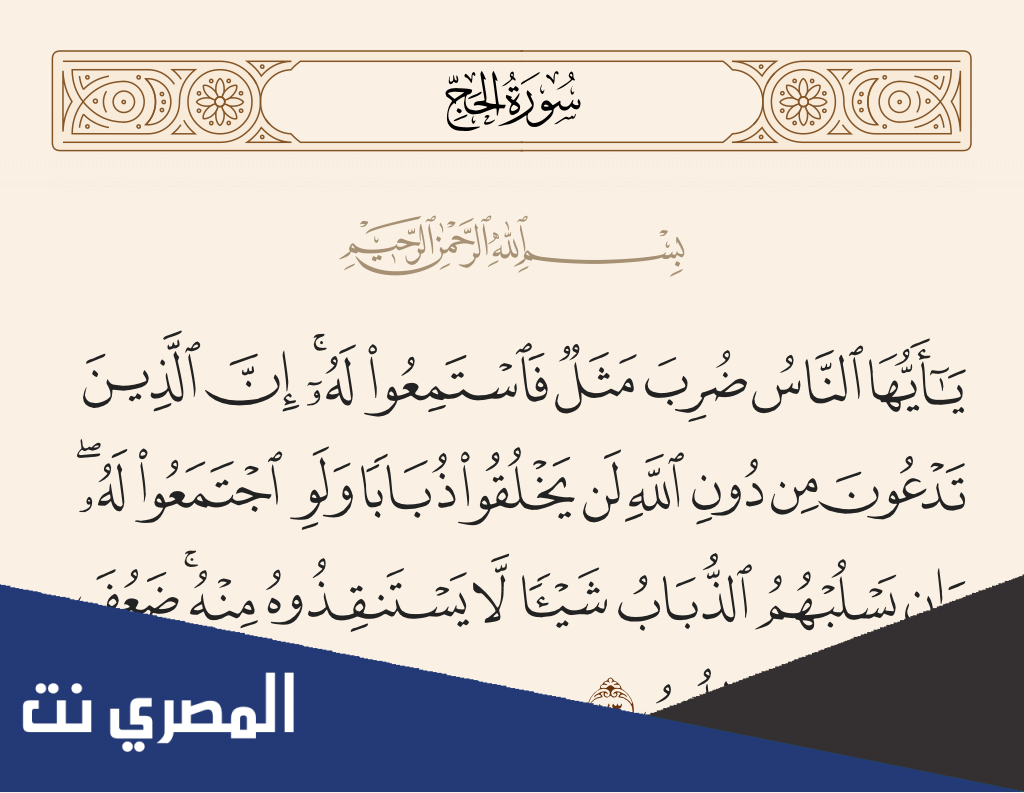 سُورَةُ الْحَجِّ
بِسْمِ ٱللَّهِ ٱلرَّحْمَٰنِ ٱلرَّحِيمِ
يَـٰٓأَيُّهَا ٱلنَّاسُ ضُرِبَ مَثَلٌ فَٱسْتَمِعُوا۟ لَهُۥٓ ۚ إِنَّ ٱلَّذِينَ
تَدْعُونَ مِن دُونِ ٱللَّهِ لَن يَخْلُقُوا۟ ذُبَابًا وَلَوِ ٱجْتَمَعُوا۟ لَهُۥ ۖ
وَإِن يَسْلُبْهُمُ ٱلذُّبَابُ شَيْـًٔا لَّا يَسْتَنقِذُوهُ مِنْهُ ۚ ضَعُفَ
المصري نت